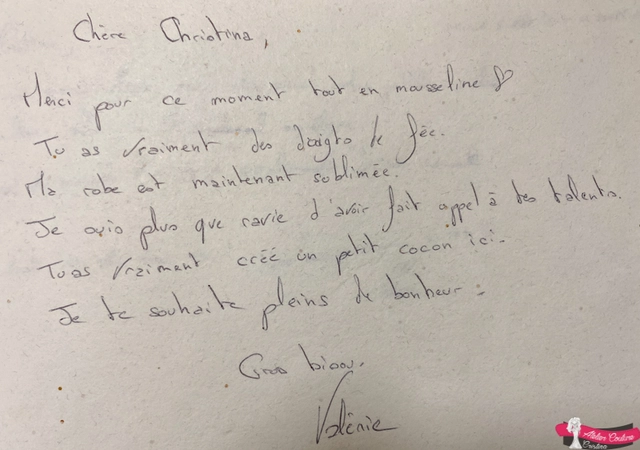 Chère Christina,
Merci pour ce moment tout en mousseline ♡
Tu as vraiment des doigts de fée.
Ma robe est maintenant sublimée.
Je suis plus que ravie d'avoir fait appel à tes talents.
Tu as vraiment créé un petit cocon ici.
Je te souhaite pleins de bonheur.
Gros bisou.
Valénie
Atelier Couture
Cristina